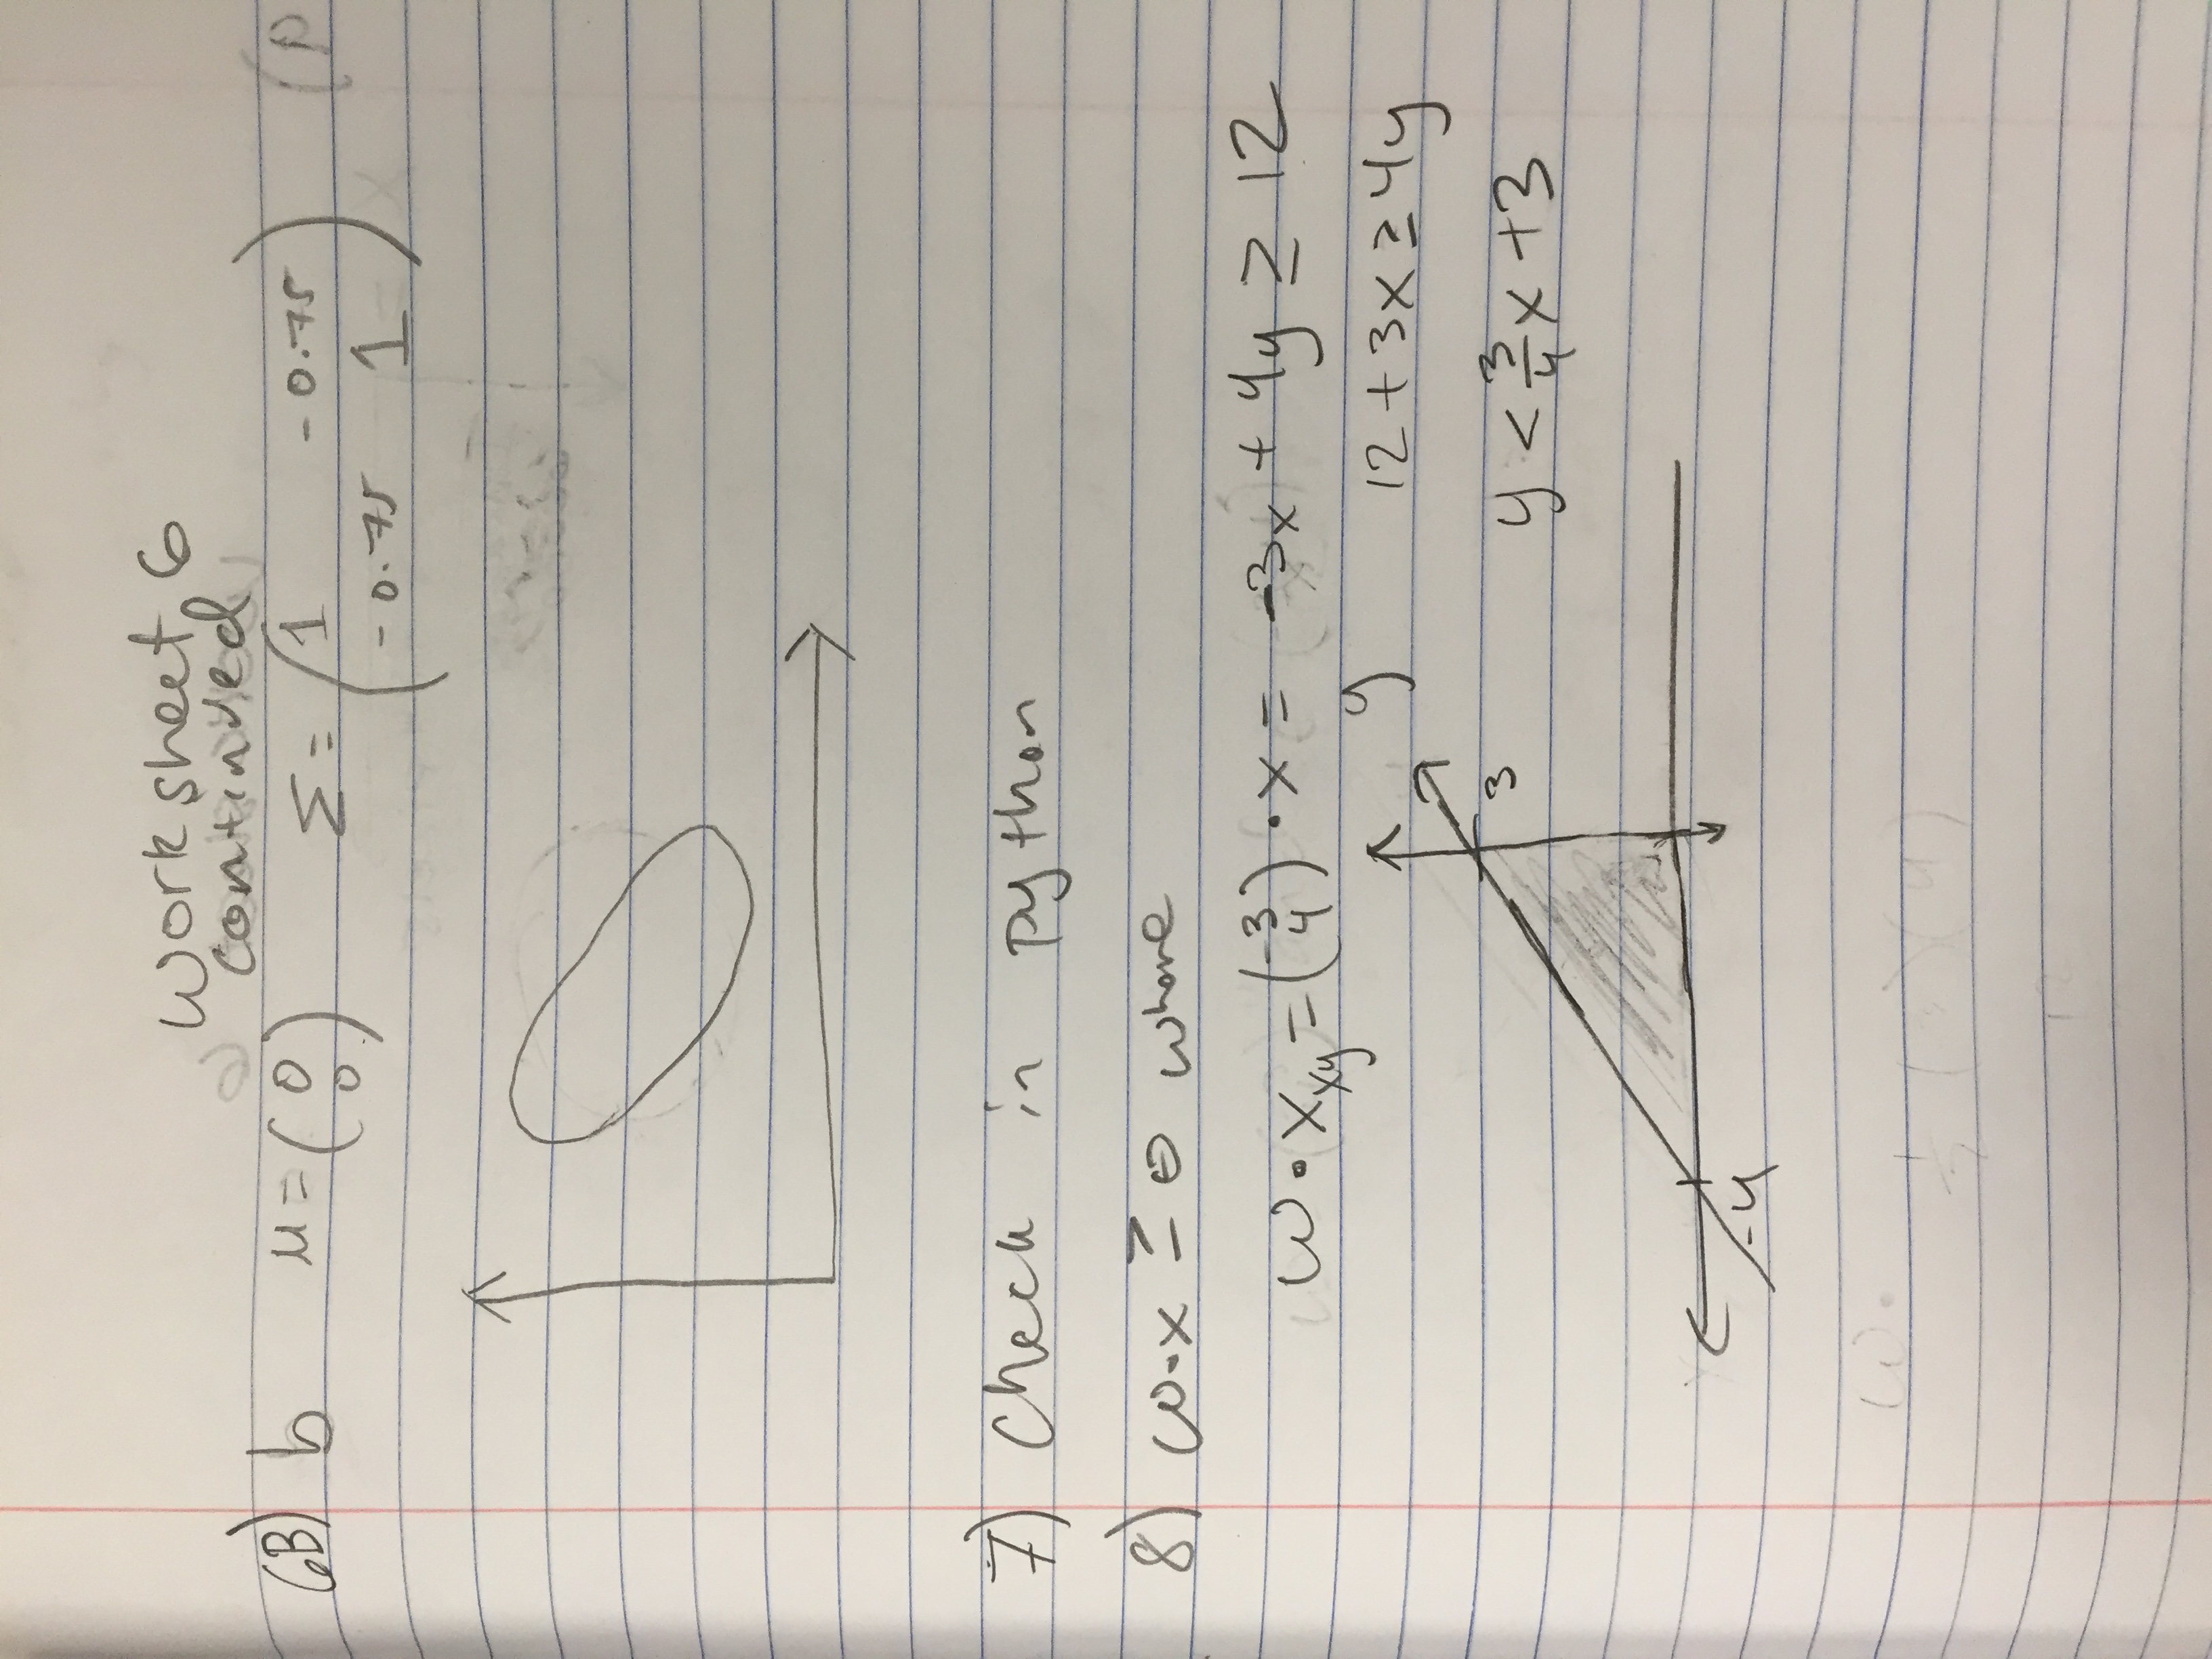 Worksheet 6
continued
6B) b μ = (0 0) Σ = (1 -0.75 -0.75 1)
7) Check in python
8) w·x ≥ θ where
w·x_xy = (-3 4)·x = -3x + 4y ≥ 12
y
12 + 3x ≥ 4y
3
y < 3/4 x + 3
-4
w·